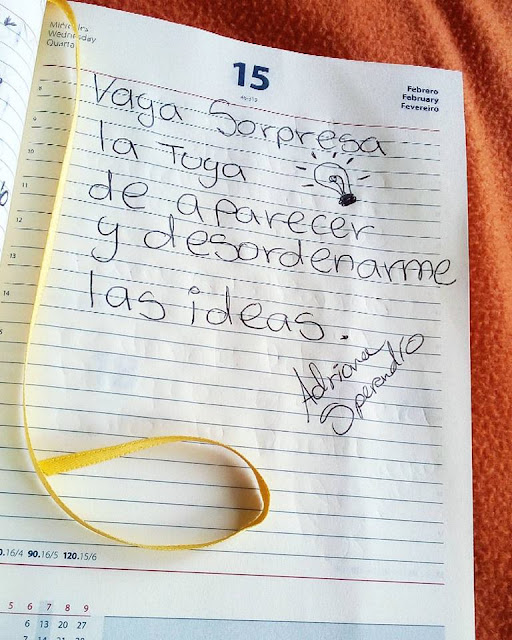 Miércoles
Wednesday
Quarta
15
46-319
Febrero
February
Fevereiro
8
9
10
11
12
13
14
Vaga Sorpresa
la Tuya
de aparecer
y desordenarme
las ideas.
Adriana
Sperandio
.16/4 90.16/5 120.15/6
5 6 7 8 9
6 13 20 27
7 14 21 28